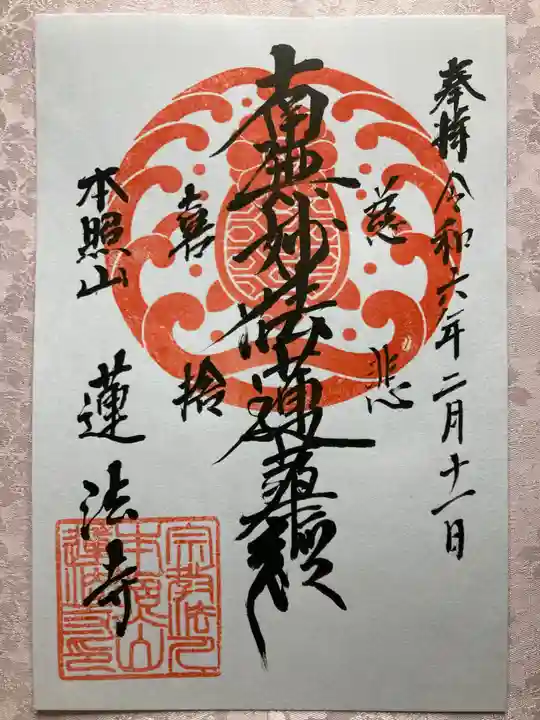 奉拝 令和六年二月十一日
慈悲
南無妙法蓮華経
喜捨
本照山 蓮法寺